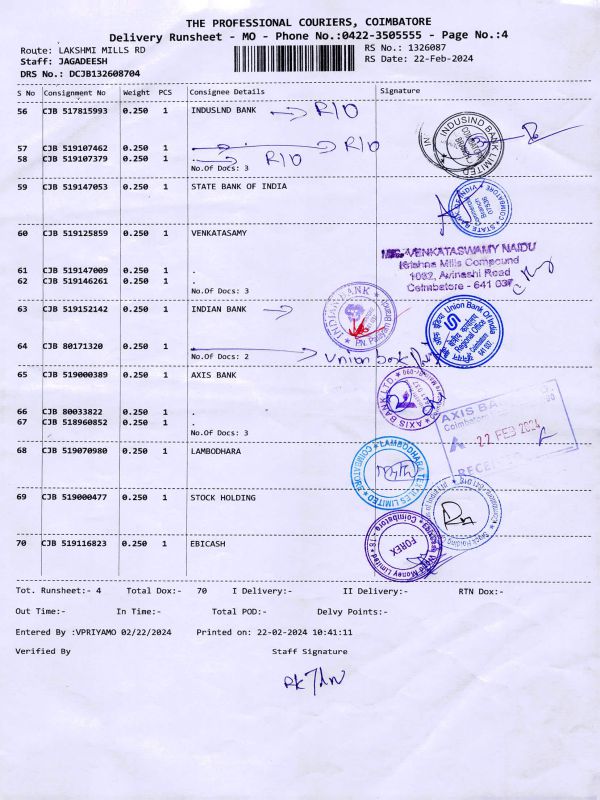 THE PROFESSIONAL COURIERS, COIMBATORE
Delivery Runsheet - MO - Phone No.:0422-3505555 - Page No.:4
Route: LAKSHMI MILLS RD RS No.: 1326087
Staff: JAGADEESH RS Date: 22-Feb-2024
DRS No.: DCJB132608704
S No Consignment No Weight PCS Consignee Details Signature
56 CJB 517815993 0.250 1 INDUSLND BANK R/O
INDUSIND BANK LIMITED
57 CJB 519107462 0.250 1 . R/O
58 CJB 519107379 0.250 1 . R/O
No.Of Docs: 3
59 CJB 519147053 0.250 1 STATE BANK OF INDIA
STATE BANK OF INDIA
COIMBATORE
Commercial Branch
07536
60 CJB 519125859 0.250 1 VENKATASAMY
VENKATASWAMY NAIDU
Krishna Mills Compound
1032, Avinashi Road
Coimbatore - 641 037
61 CJB 519147009 0.250 1 .
62 CJB 519146261 0.250 1 .
No.Of Docs: 3
63 CJB 519152142 0.250 1 INDIAN BANK
INDIAN BANK
Union Bank Of India
Regional Office
Coimbatore
641 037
64 CJB 80171320 0.250 1 .
No.Of Docs: 2 Union bank
65 CJB 519000389 0.250 1 AXIS BANK
AXIS BANK LTD
66 CJB 80033822 0.250 1 .
67 CJB 518960852 0.250 1 .
No.Of Docs: 3
AXIS BA
Coimbato
22 FEB 2024
68 CJB 519070980 0.250 1 LAMBODHARA
LAMBODHARA TEXTILES LIMITED
COIMBATORE
69 CJB 519000477 0.250 1 STOCK HOLDING
Stock Holding
70 CJB 519116823 0.250 1 EBICASH
World Money Limited
Coimbatore - 18
FOREX
Tot. Runsheet:- 4 Total Dox:- 70 I Delivery:- II Delivery:- RTN Dox:-
Out Time:- In Time:- Total POD:- Delvy Points:-
Entered By :VPRIYAMO 02/22/2024 Printed on: 22-02-2024 10:41:11
Verified By Staff Signature